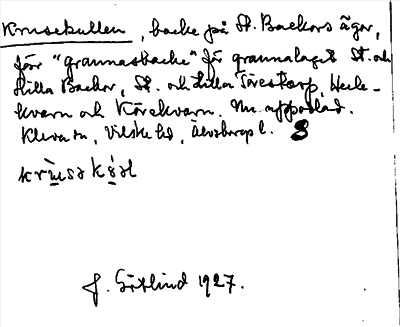 Krusekullen, backe på St. Backors ägor,
förr "grannasbacke" för grannalaget St. och
Lilla Backor, St. och Lilla Törestorp, Hecke-
kvarn och Körekvarn. Nu uppodlad.
Kleva sn, Vilske hd, Älvsborgs l. S
krusə
J. Götlind 1927.